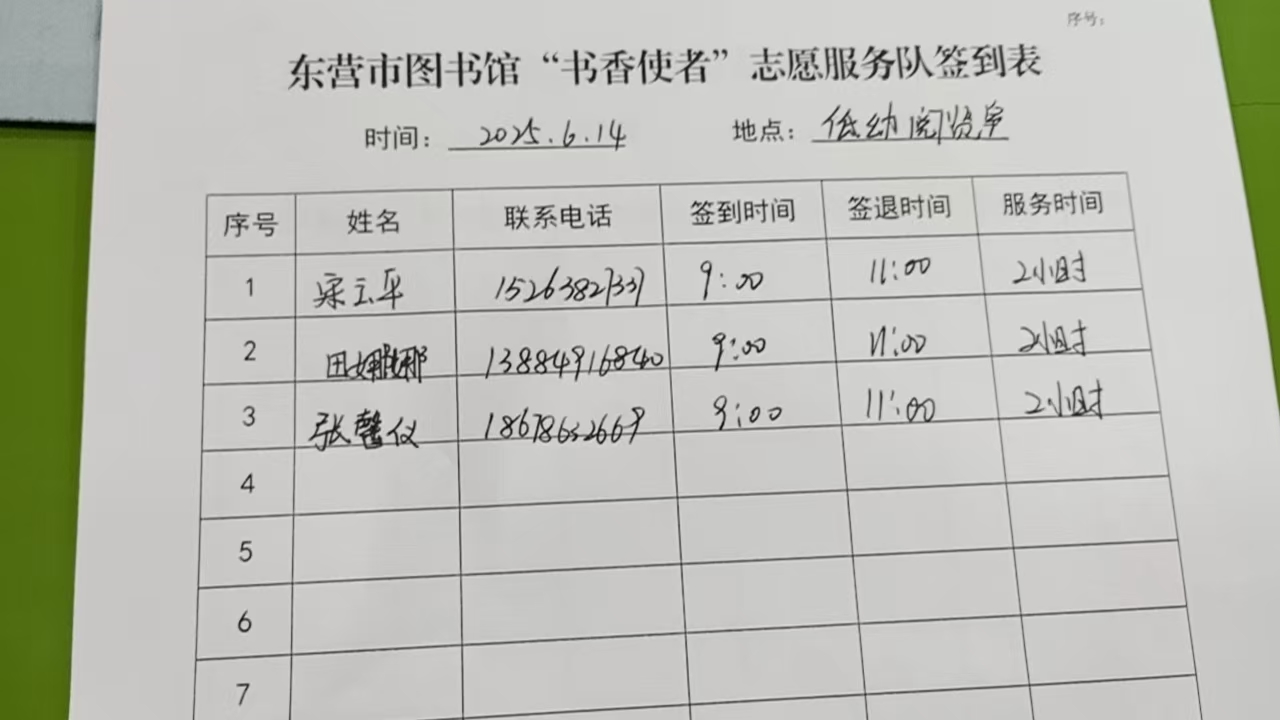 序号:
东营市图书馆“书香使者”志愿服务队签到表
时间: 2025.6.14 地点: 低幼阅览室
序号 姓名 联系电话 签到时间 签退时间 服务时间
1 宋云平 15263827337 9:00 11:00 2小时
2 田娜娜 13884916840 9:00 11:00 2小时
3 张馨仪 18678632669 9:00 11:00 2小时
4
5
6
7